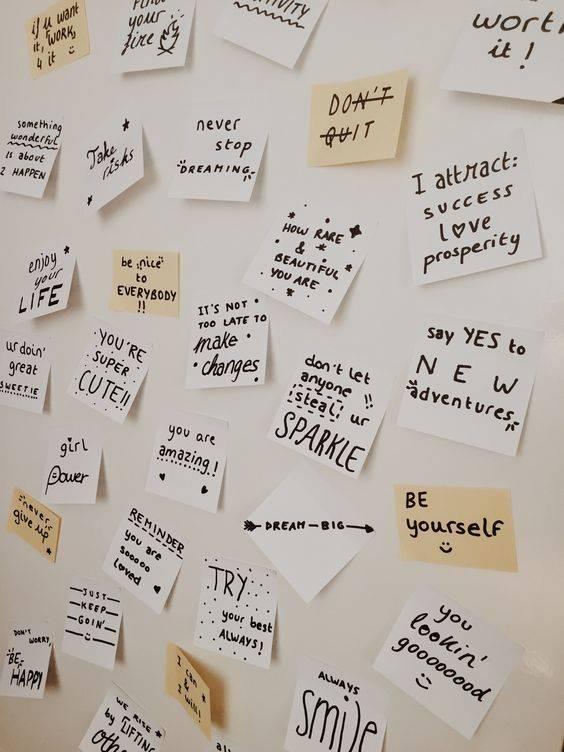 if u want
it, WORK
4 it
your
fire
worth
it!
something
wonderful
is about
2 HAPPEN
Take
risks
never
stop
DREAMING
DON'T
QUIT
I attract:
SUCCESS
LOVE
prosperity
HOW RARE
&
BEAUTIFUL
YOU ARE
enjoy
your
LIFE
be "nice"
to
EVERYBODY
!!
IT'S NOT
TOO LATE TO
make
changes
say YES to
NEW
adventures
ur doin'
great
SWEETIE
YOU'RE
SUPER
CUTE!!
don't let
anyone !!
steal ur
SPARKLE
girl
Power
you are
amazing!
never
give up
REMINDER
you are
sooooo
loved
DREAM-BIG
BE
yourself
JUST
KEEP
GOIN'
TRY
your best
ALWAYS!
you
lookin'
gooooooood
DON'T WORRY
BE
HAPPY
I can
&
I will!
ALWAYS
smile
WE RISE
by LIFTING